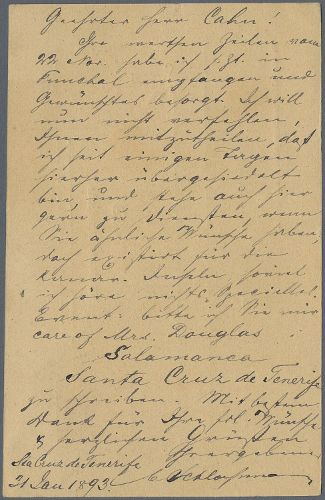 Geehrter Herr Cahn!
Ihre werthen Zeilen vom
22 Nov. habe ich s. Zt. in
Funchal empfangen und
Gewünschtes besorgt. Ich will
nun nicht verfehlen,
Ihnen mitzutheilen, daß
ich seit einigen Tagen
hierher übergesiedelt
bin, und stehe auch hier
gern zu Diensten, wenn
Sie ähnliche Wünsche haben,
doch existirt für die
Kanar. Inseln, soviel
ich höre nichts Specielles.
Event: bitte ich Sie mir
care of Mrs. Douglas
Salamanca
Santa Cruz de Tenerife
zu schreiben. Mit bestem
Dank für Ihre frl. Wünsche
& herzlichen Grüssen
Ihr ergebener
Sta Cruz de Tenerife
21 Jan 1893.